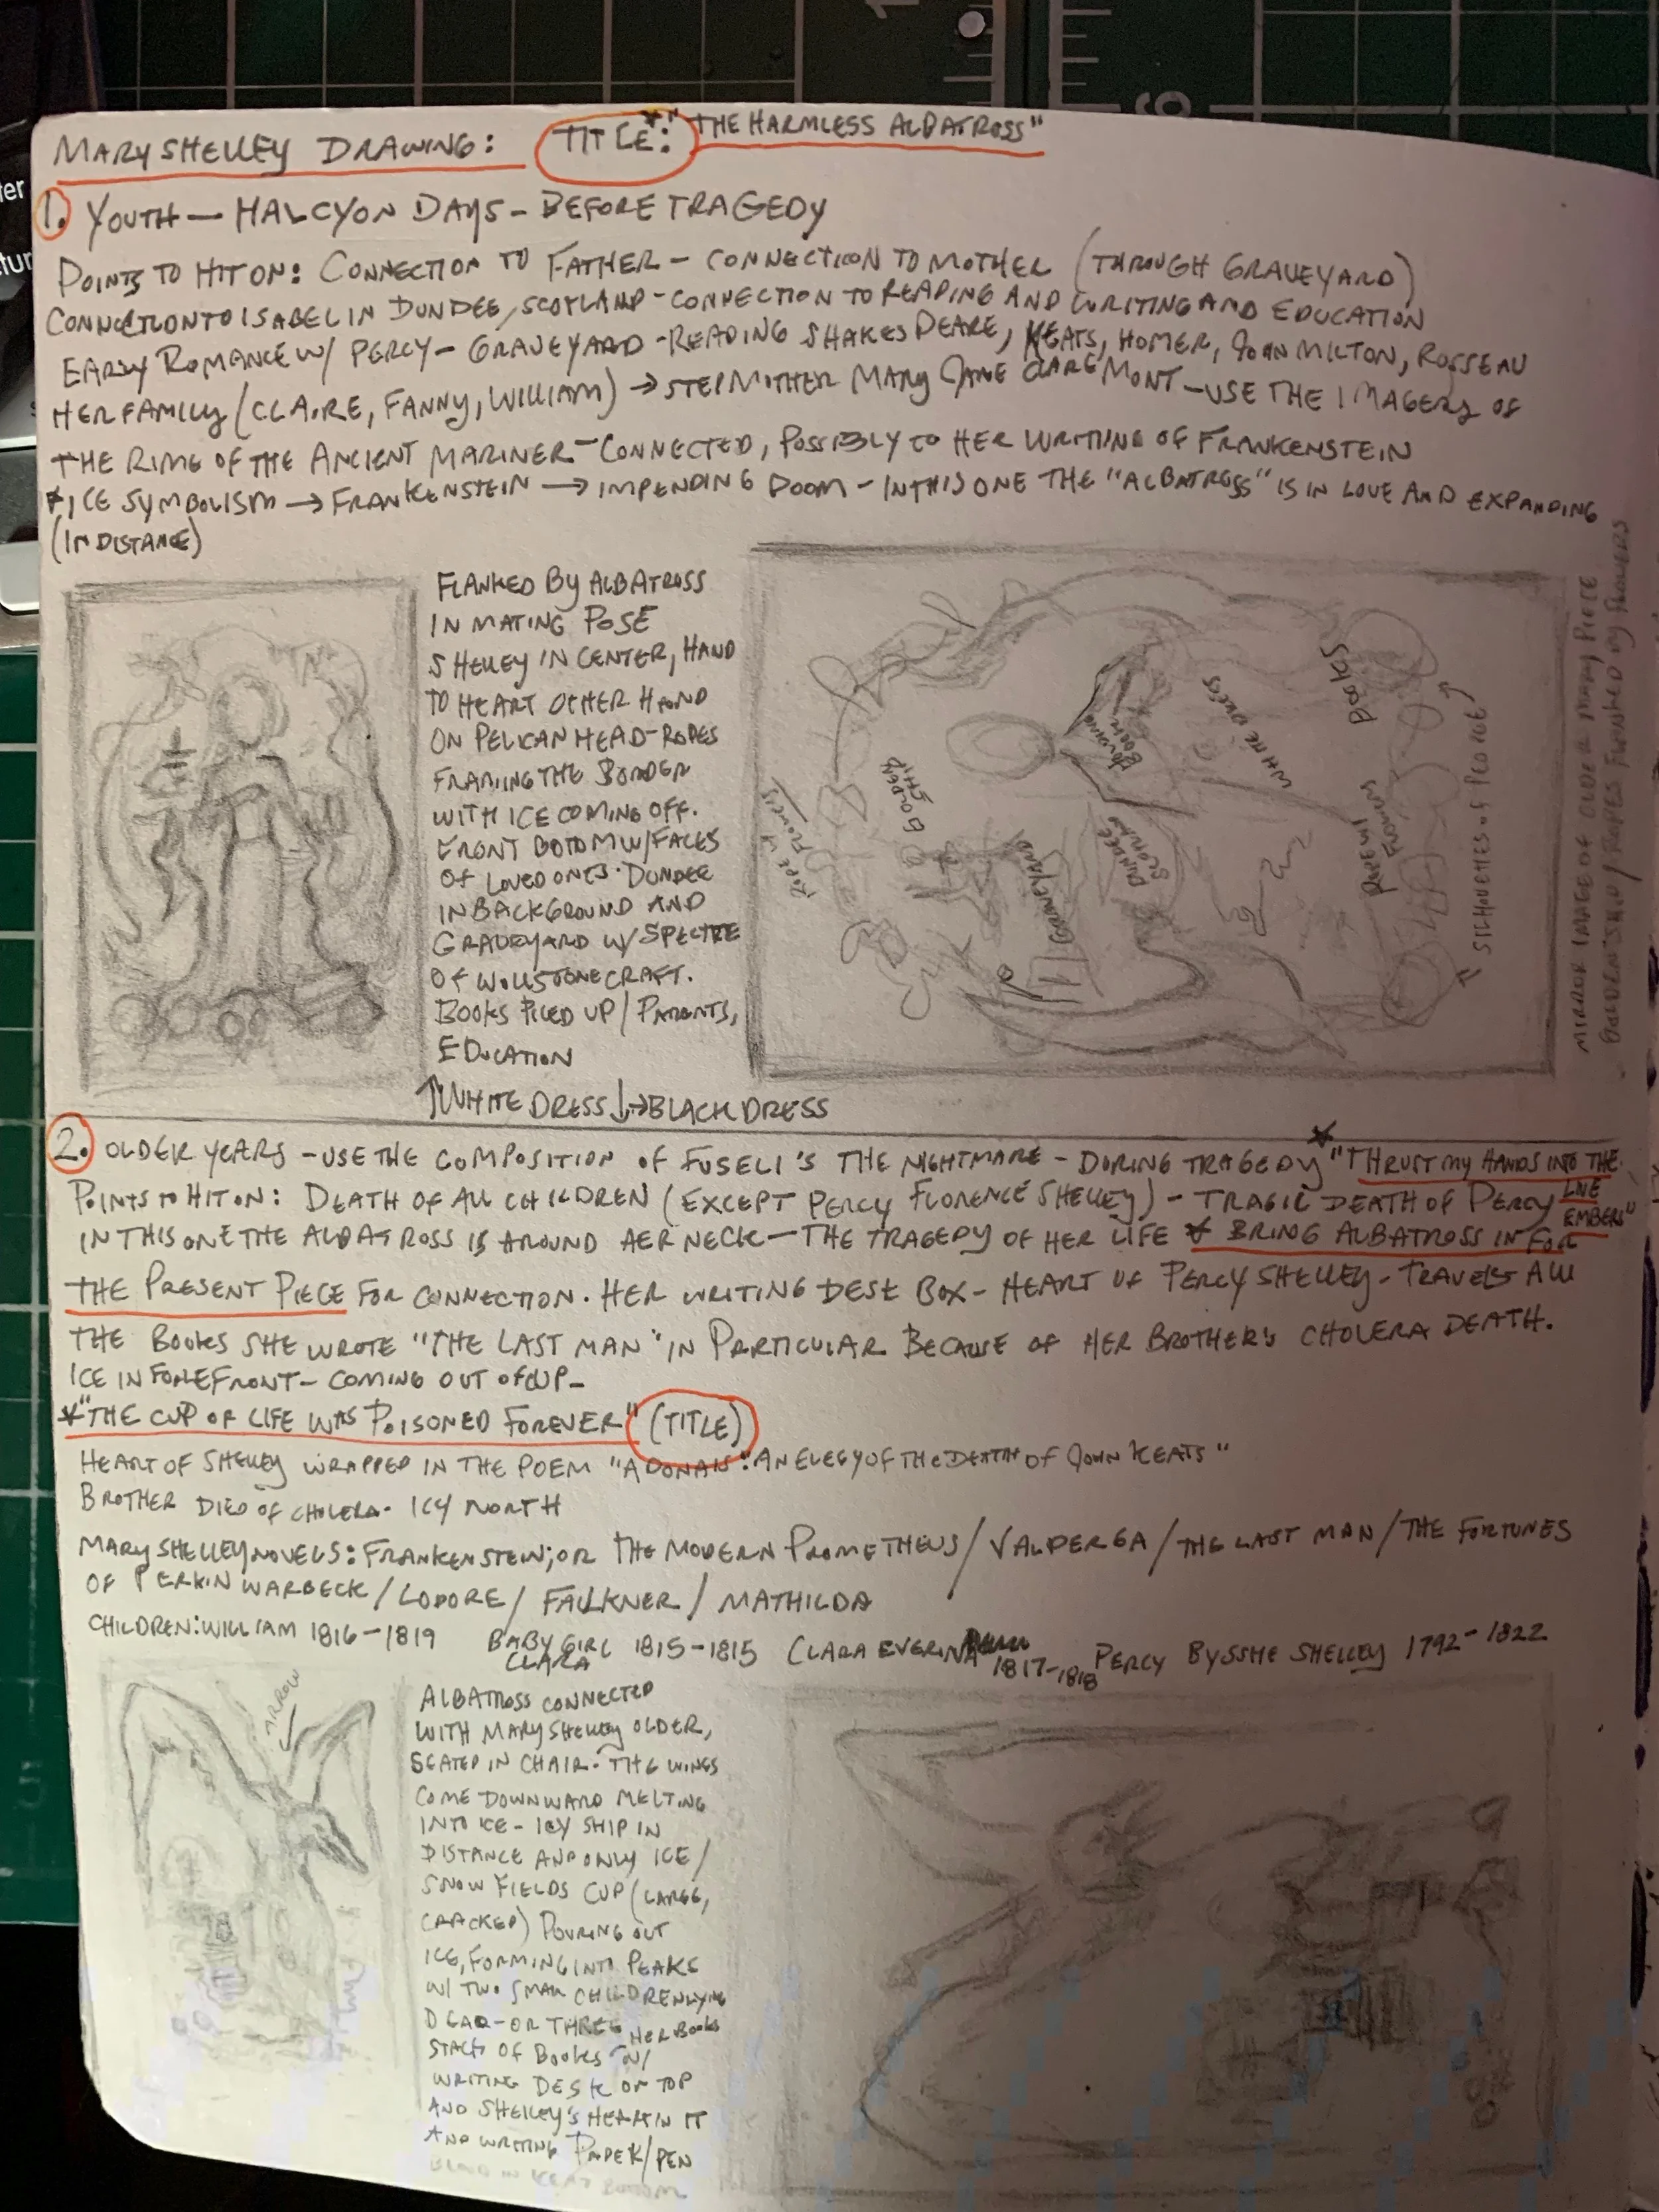 MARY SHELLEY DRAWING: TITLE: * "THE HARMLESS ALBATROSS"
1. YOUTH — HALCYON DAYS - BEFORE TRAGEDY
POINTS TO HIT ON: CONNECTION TO FATHER - CONNECTION TO MOTHER (THROUGH GRAVEYARD)
CONNECTION TO ISABEL IN DUNDEE, SCOTLAND - CONNECTION TO READING AND WRITING AND EDUCATION
EARLY ROMANCE W/ PERCY - GRAVEYARD - READING SHAKESPEARE, KEATS, HOMER, JOHN MILTON, ROSSEAU
HER FAMILY (CLAIRE, FANNY, WILLIAM) → STEPMOTHER MARY JANE CLAREMONT - USE THE IMAGERY OF
THE RIME OF THE ANCIENT MARINER - CONNECTED, POSSIBLY TO HER WRITING OF FRANKENSTEIN
* ICE SYMBOLISM → FRANKENSTEIN → IMPENDING DOOM - IN THIS ONE THE "ALBATROSS" IS IN LOVE AND EXPANDING
(IN DISTANCE)
FLANKED BY ALBATROSS
IN MATING POSE
SHELLEY IN CENTER, HAND
TO HEART OTHER HAND
ON PELICAN HEAD - ROPES
FRAMING THE BORDER
WITH ICE COMING OFF.
FRONT BOTOM W/ FACES
OF LOVED ONES. DUNDEE
IN BACKGROUND AND
GRAVEYARD W/ SPECTRE
OF WOLLSTONECRAFT.
BOOKS PILED UP / PARENTS,
EDUCATION
↑ WHITE DRESS ↓ → BLACK DRESS
ROPE W/ FLOWERS
GOLDEN SHIP
GRAVEYARD
DUNDEE
WHITE DRESS
BOOKS
FLOWERS
SILHOUETTES OF PEOPLE
MIRROR IMAGE OF OLDER MARY PIECE
GOLDEN SHIP / ROPES FLANKED BY FLOWERS
2. OLDER YEARS - USE THE COMPOSITION OF FUSELI'S THE NIGHTMARE - DURING TRAGEDY * "THRUST MY HANDS INTO THE LIVE EMBERS"
POINTS TO HIT ON: DEATH OF ALL CHILDREN (EXCEPT PERCY FLORENCE SHELLEY) - TRAGIC DEATH OF PERCY
IN THIS ONE THE ALBATROSS IS AROUND HER NECK — THE TRAGEDY OF HER LIFE * BRING ALBATROSS IN FOR
THE PRESENT PIECE FOR CONNECTION. HER WRITING DESK BOX - HEART OF PERCY SHELLEY - TRAVELS ALL
THE BOOKS SHE WROTE "THE LAST MAN" IN PARTICULAR BECAUSE OF HER BROTHER'S CHOLERA DEATH.
ICE IN FOREFRONT - COMING OUT OF CUP -
* "THE CUP OF LIFE WAS POISONED FOREVER" (TITLE)
HEART OF SHELLEY WRAPPED IN THE POEM "ADONAIS: AN ELEGY OF THE DEATH OF JOHN KEATS"
BROTHER DIED OF CHOLERA - ICY NORTH
MARY SHELLEY NOVELS: FRANKENSTEIN; OR THE MODERN PROMETHEUS / VALPERGA / THE LAST MAN / THE FORTUNES
OF PERKIN WARBECK / LODORE / FAULKNER / MATHILDA
CHILDREN: WILLIAM 1816-1819 BABY GIRL CLARA 1815-1815 CLARA EVERINA 1817-1818 PERCY BYSSHE SHELLEY 1792-1822
ARROW
ALBATROSS CONNECTED
WITH MARY SHELLEY OLDER,
SEATED IN CHAIR. THE WINGS
COME DOWNWARD MELTING
INTO ICE - ICY SHIP IN
DISTANCE AND ONLY ICE /
SNOW FIELDS CUP (LARGE,
CRACKED) POURING OUT
ICE, FORMING INTO PEAKS
W/ TWO SMALL CHILDREN LYING
DEAD - OR THREE HER BOOKS
STACK OF BOOKS W/
WRITING DESK ON TOP
AND SHELLEY'S HEART IN IT
AND WRITING PAPER/PEN